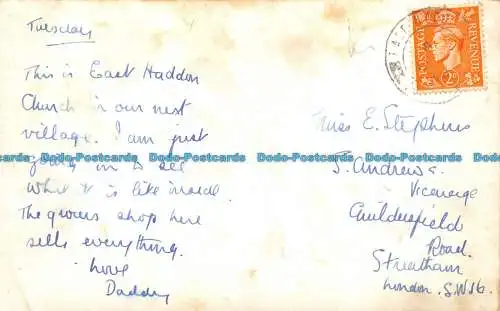 Tuesday
This is East Haddon
Church in our next
village. I am just
going in to see
what it is like inside.
The grocers shop here
sells everything.
love
Daddy
POSTAGE
REVENUE
2D
Miss E. Stephens
S. Andrews.
Vicarage
Guildersfield
Road.
Streatham
London. S.W.16.
Dado-Postcards Dado-Postcards Dado-Postcards Dado-Postcards Dado-Postcards